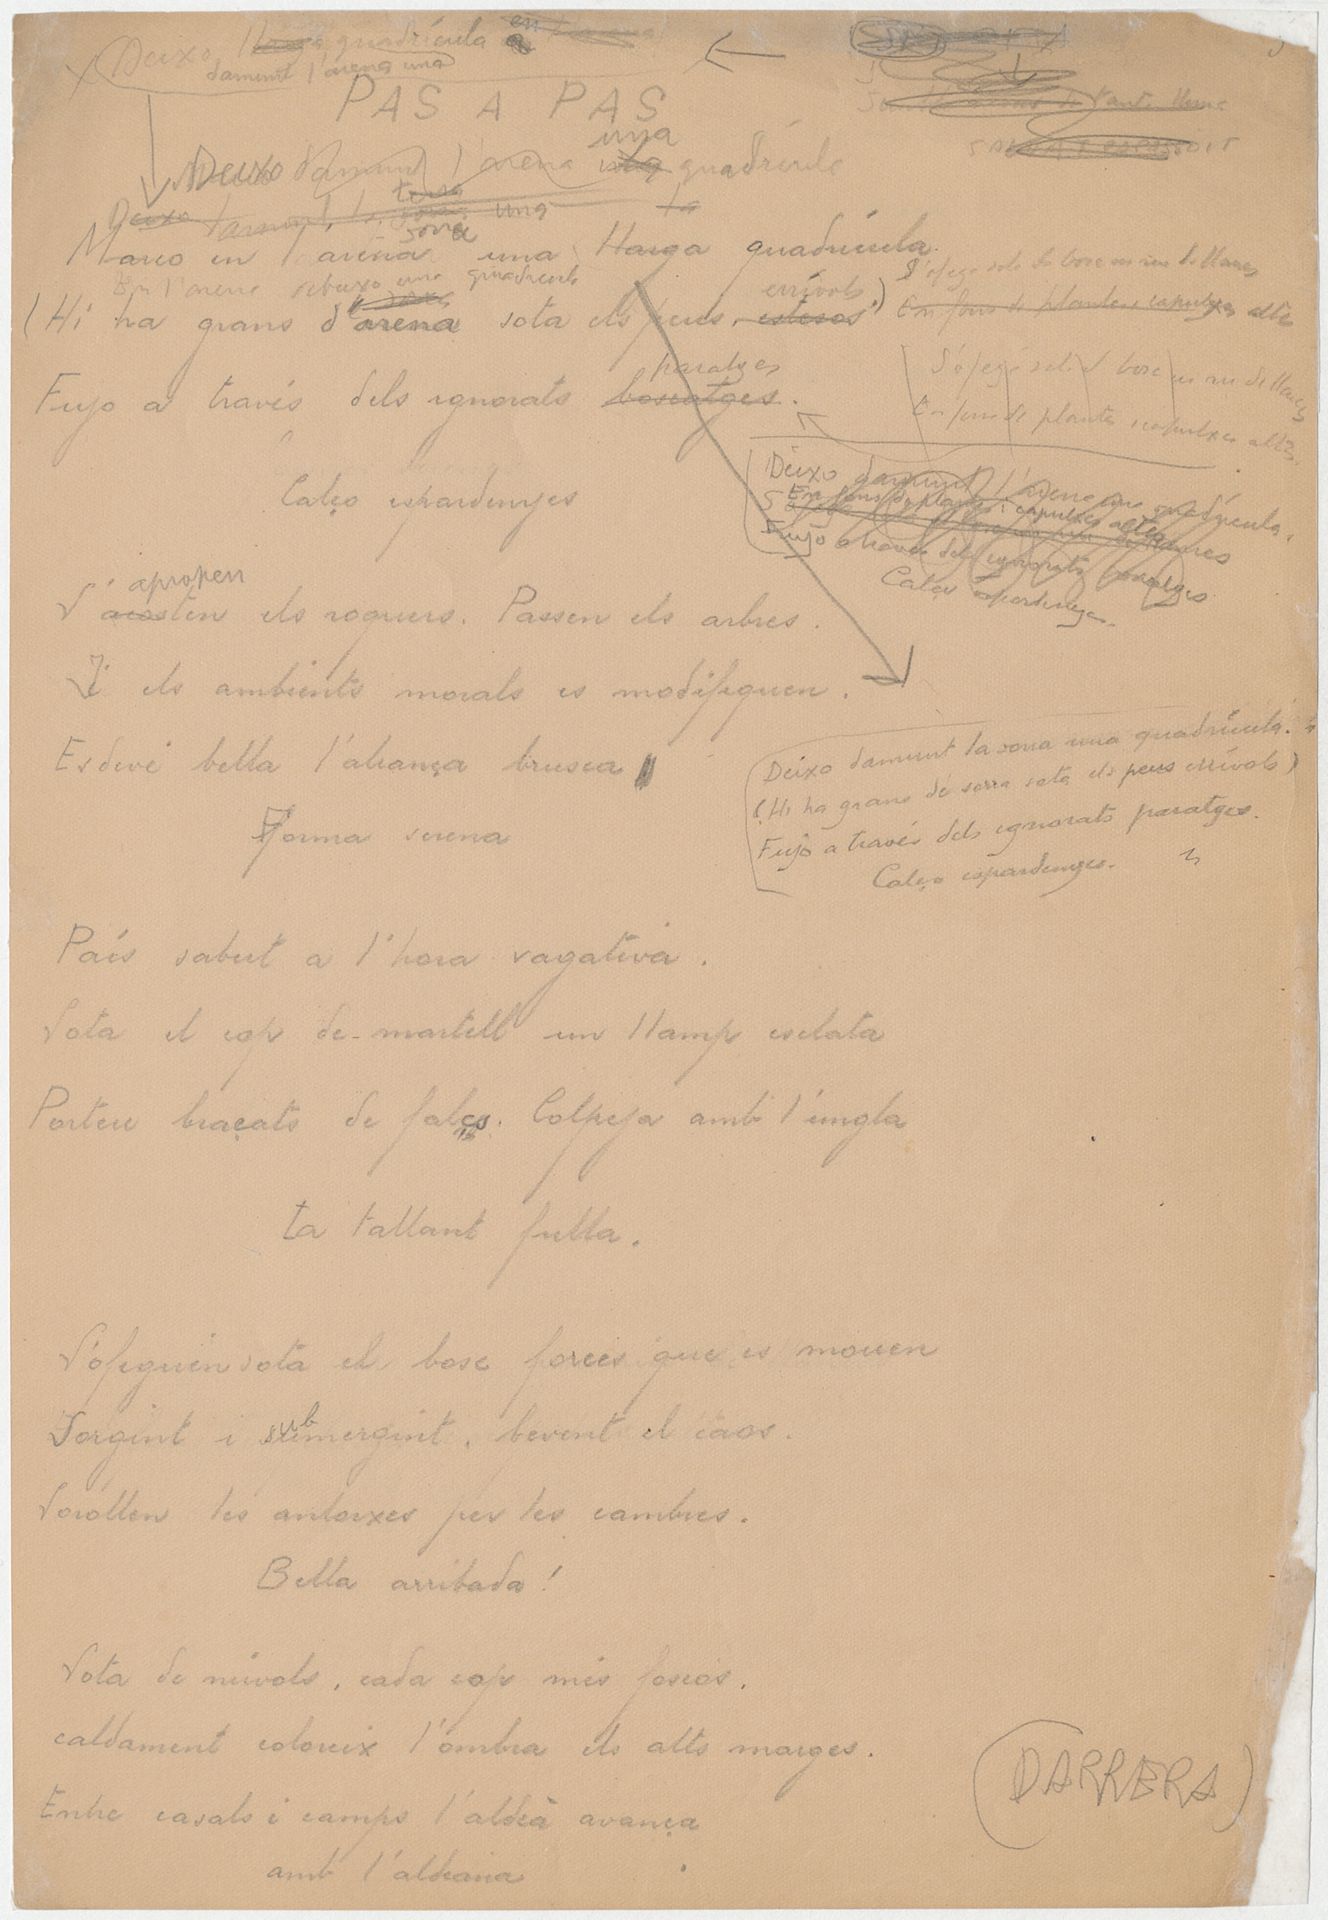 Deixo llarga quadrícula en
damunt l'arena una
PAS A PAS
una
Deixo damunt l'arena quadrícula
Deixo damunt la una
sorra
Marco en l'arena una llarga quadrícula.
En l'arena una quadrícula
errívols
(Hi ha grans d'arena sota els peus, estesos)
paratges
Fujo a través dels ignorats boscatges.
Calço espardenyes
apropen
S'acosten els roquers. Passen els arbres.
I els ambients morals es modifiquen.
Esdevé bella l'aliança brusca
Forma serena
País sabut a l'hora vagativa.
Sota el cop de martell un llamp esclata
Porteu braçats de falçs. Colpeja amb l'ungla
ta tallant fulla.
S'ofeguen sota el bosc forces que es mouen
Sorgint i submergint, bevent el caos.
Sorollen les antorxes per les cambres.
Bella arribada!
Sota de núvols, cada cop més foscos,
caldament coloreix l'ombra els alts marges.
Entre casals i camps l'aldeà avança
amb l'aldeana
S'ofega sota el bosc un riu de llunes
En fons de plantes i caputxes altes
S'ofega sota el bosc un riu de llunes
En fons de plantes i caputxes altes.
Deixo damunt l'arena una quadrícula.
En fons de plantes i caputxes altes
Fujo a través dels ignorats paratges
Calço espardenyes.
Deixo damunt la sorra una quadrícula.
(Hi ha grans de sorra sota els peus errívols)
Fujo a través dels ignorats paratges.
Calço espardenyes.
(DARRERA)